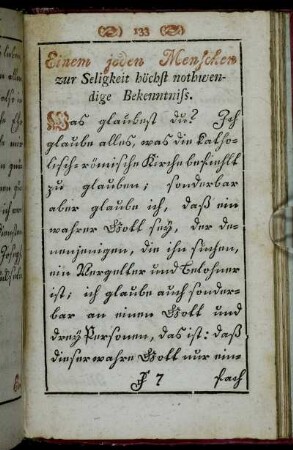 133
Einem jeden Menschen
zur Seligkeit höchst nothwen-
dige Bekenntniß.
Was glaubest du? Ich
glaube alles, was die katho-
lisch-römische Kirche befiehlt
zu glauben; sonderbar
aber glaube ich, daß ein
wahrer Gott sey, der de-
nenjenigen, die ihn suchen,
ein Vergelter und Belohner
ist; ich glaube auch sonder-
bar an einen Gott und
drey Personen, das ist: daß
dieser wahre Gott nur ein-
J 7 fach